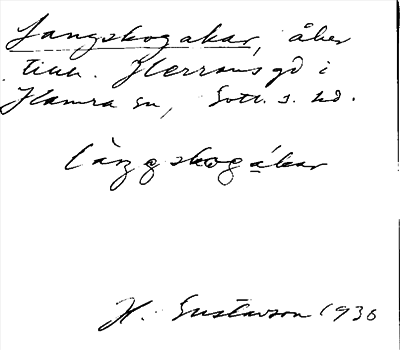 Langskogakar, åker
tillh. Herrans gd i
Hamra sn, Gotl. s. hd.
làngskogákar
H. Gustavson 1936